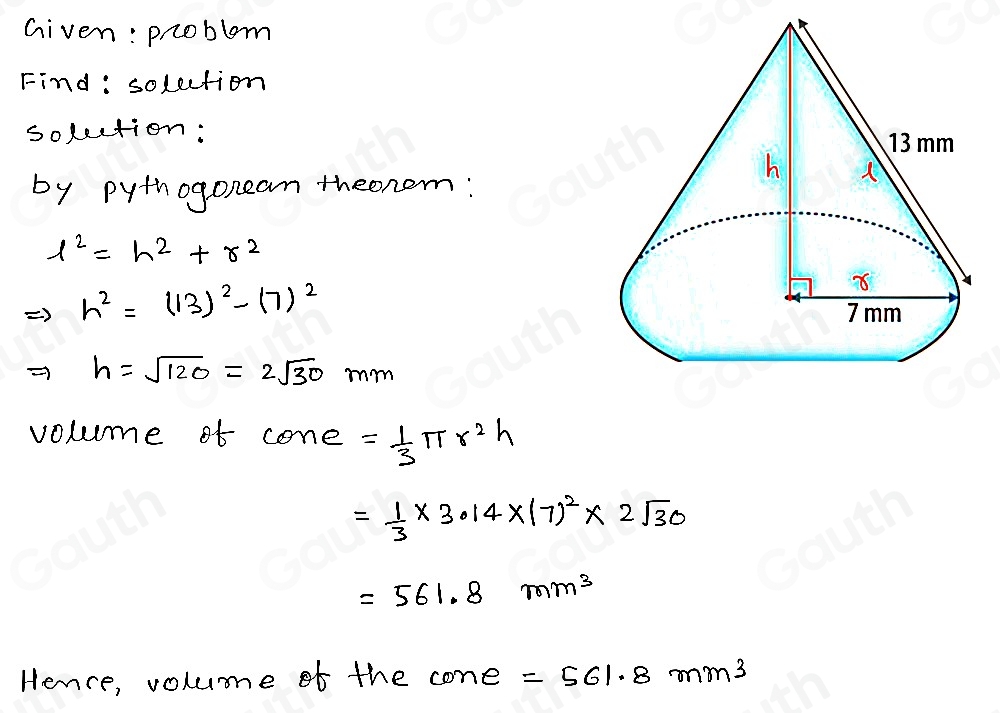 Given : problem
Find : solution
solution :
by pythogorean theorem :
l² = h² + r²
⇒ h² = (13)² - (7)²
⇒ h = √120 = 2√30 mm
volume of cone = 1/3 π r² h
= 1/3 × 3.14 × (7)² × 2√30
= 561.8 mm³
Hence, volume of the cone = 561.8 mm³
13 mm
h
l
r
7 mm
Gauth